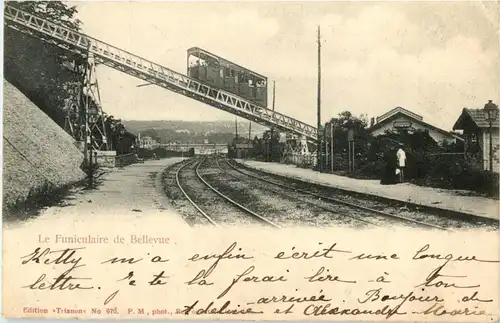 Le Funiculaire de Bellevue
Hetty m'a enfin écrit une longue
lettre. Je te la ferai lire à ton
arrivée. Bonjour de
Edition »Trianon« No 670. P. M., phot.,
Adeline et Alexandra Marie